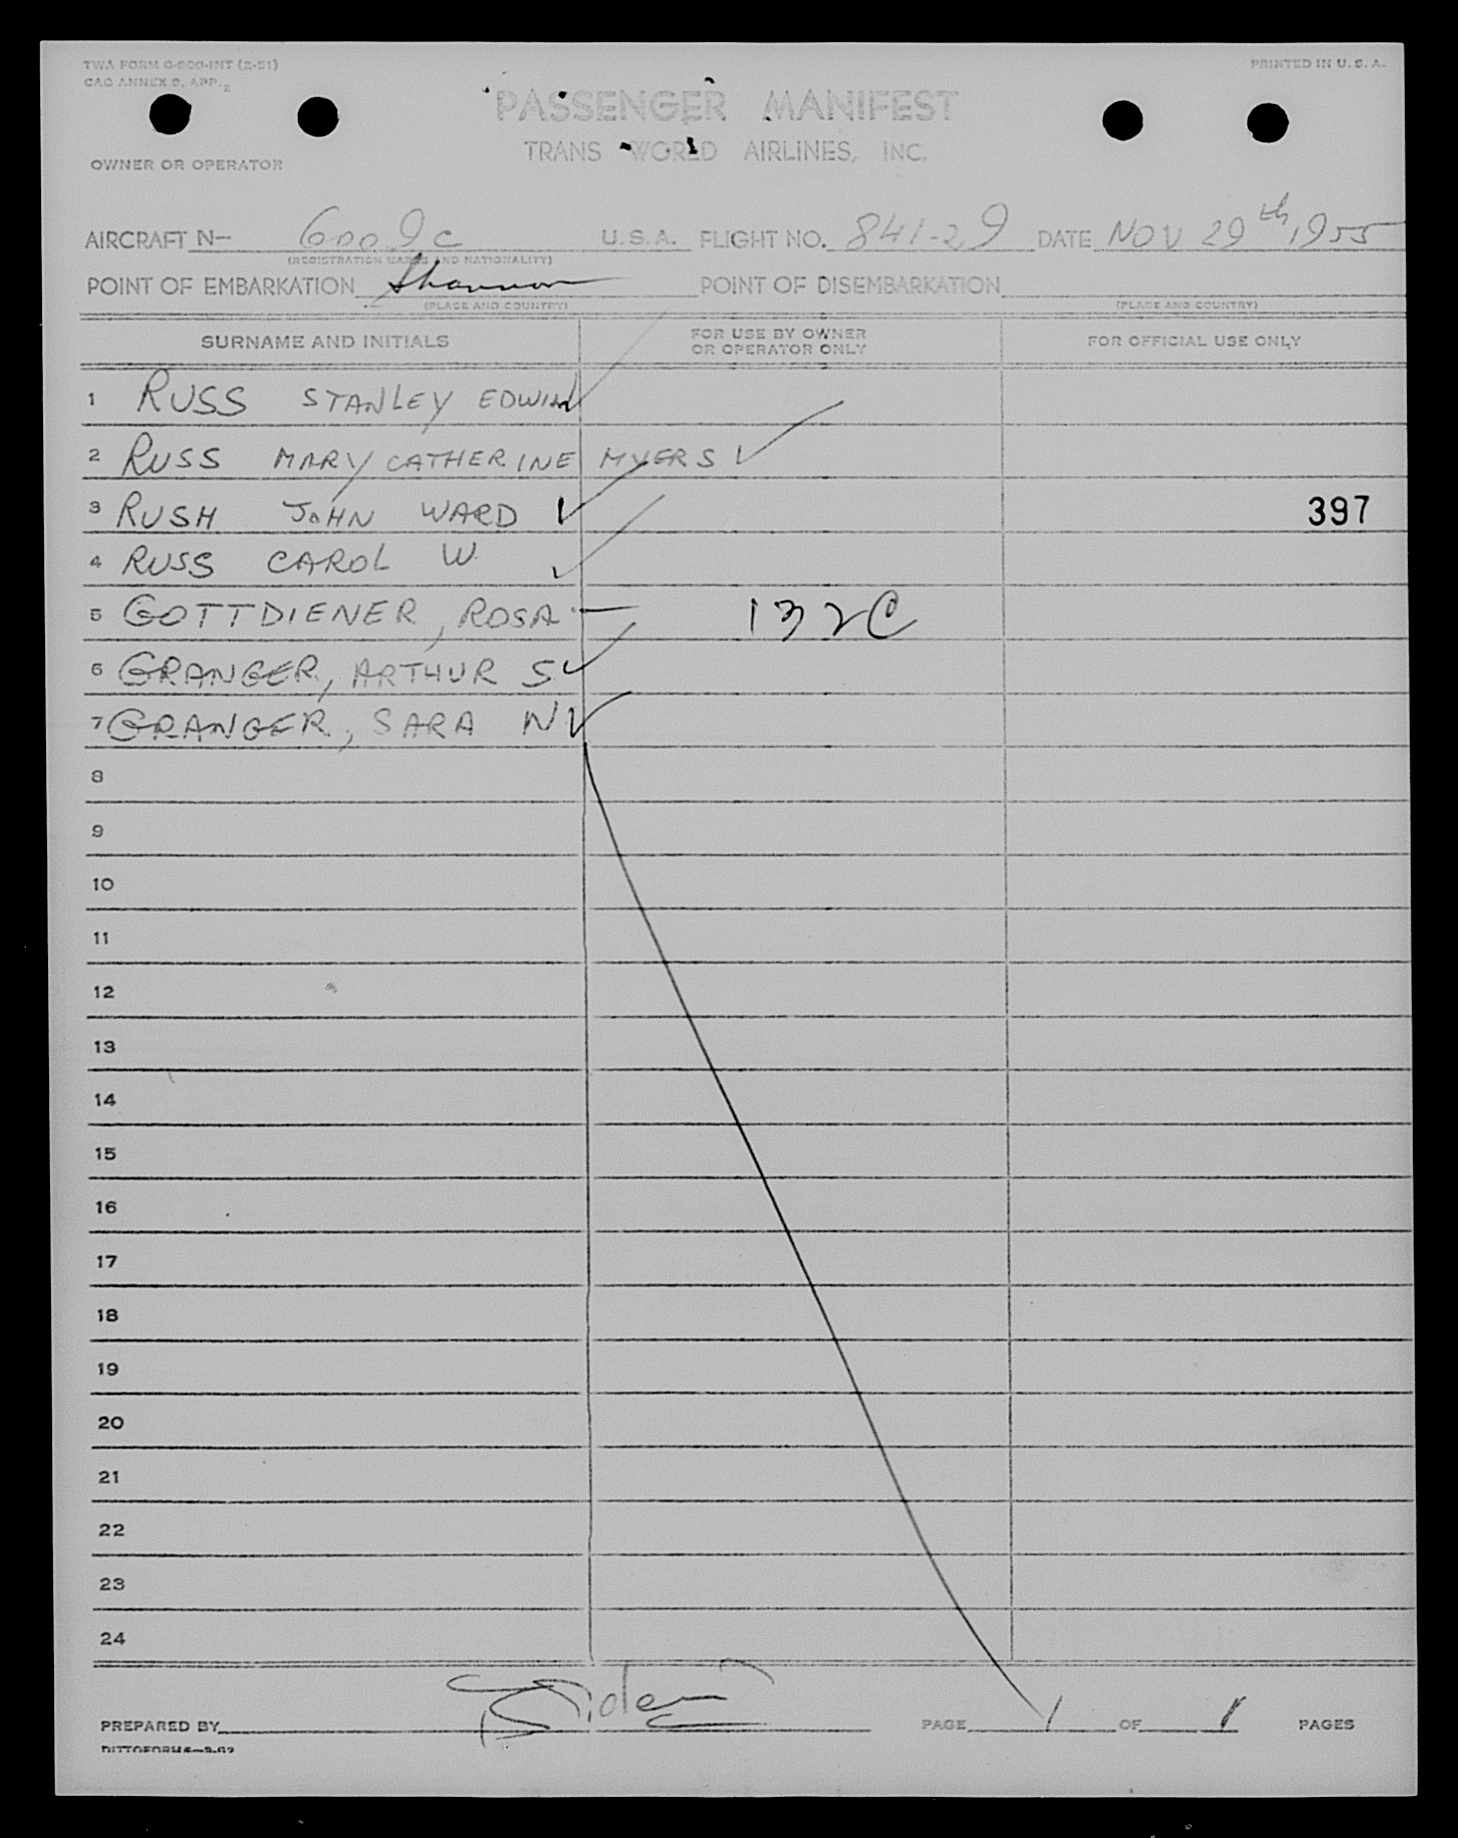 TWA FORM O-800-INT (2-51) PRINTED IN U. S. A.
CAO ANNEX 9, APP. 2
PASSENGER MANIFEST
TRANS WORLD AIRLINES, INC.
OWNER OR OPERATOR
AIRCRAFT N- 6009C U.S.A. FLIGHT NO. 841-29 DATE NOV 29th, 1955
(REGISTRATION MARKS AND NATIONALITY)
POINT OF EMBARKATION Shannon POINT OF DISEMBARKATION
(PLACE AND COUNTRY) (PLACE AND COUNTRY)
SURNAME AND INITIALS FOR USE BY OWNER OR OPERATOR ONLY FOR OFFICIAL USE ONLY
1 RUSS STANLEY EDWIN
2 RUSS MARY CATHERINE MYERS
3 RUSH JOHN WARD 397
4 RUSS CAROL W.
5 GOTTDIENER, ROSA — 132C
6 GRANGER, ARTHUR S
7 GRANGER, SARA N
8
9
10
11
12
13
14
15
16
17
18
19
20
21
22
23
24
PREPARED BY PAGE 1 OF 1 PAGES